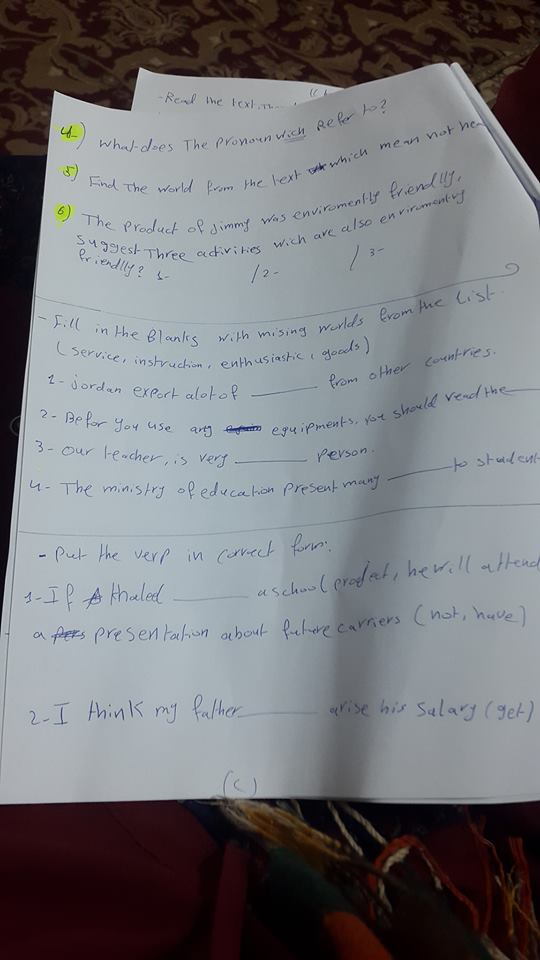 - Read the text, The
4-) What does The pronoun wich Refer to?
5) Find The world from the text which mean not hea
6) The product of Jimmy was enviromently friendlly,
suggest Three activities wich are also enviromently
friendlly? 1- / 2- / 3-
- Fill in the Blanks with mising worlds from the List.
(service, instruction, enthusiastic, goods)
1- Jordan export alot of ______ from other countries.
2- Befor you use any equipments, you should read the ______
3- our teacher, is very ______ person.
4- The ministry of education present many ______ to student
- put the verp in correct form:
1- If thaled ______ a school project, he will attend
a presentation about future carriers (not, have)
2- I think my father ______ arise his salary (get)
(C)